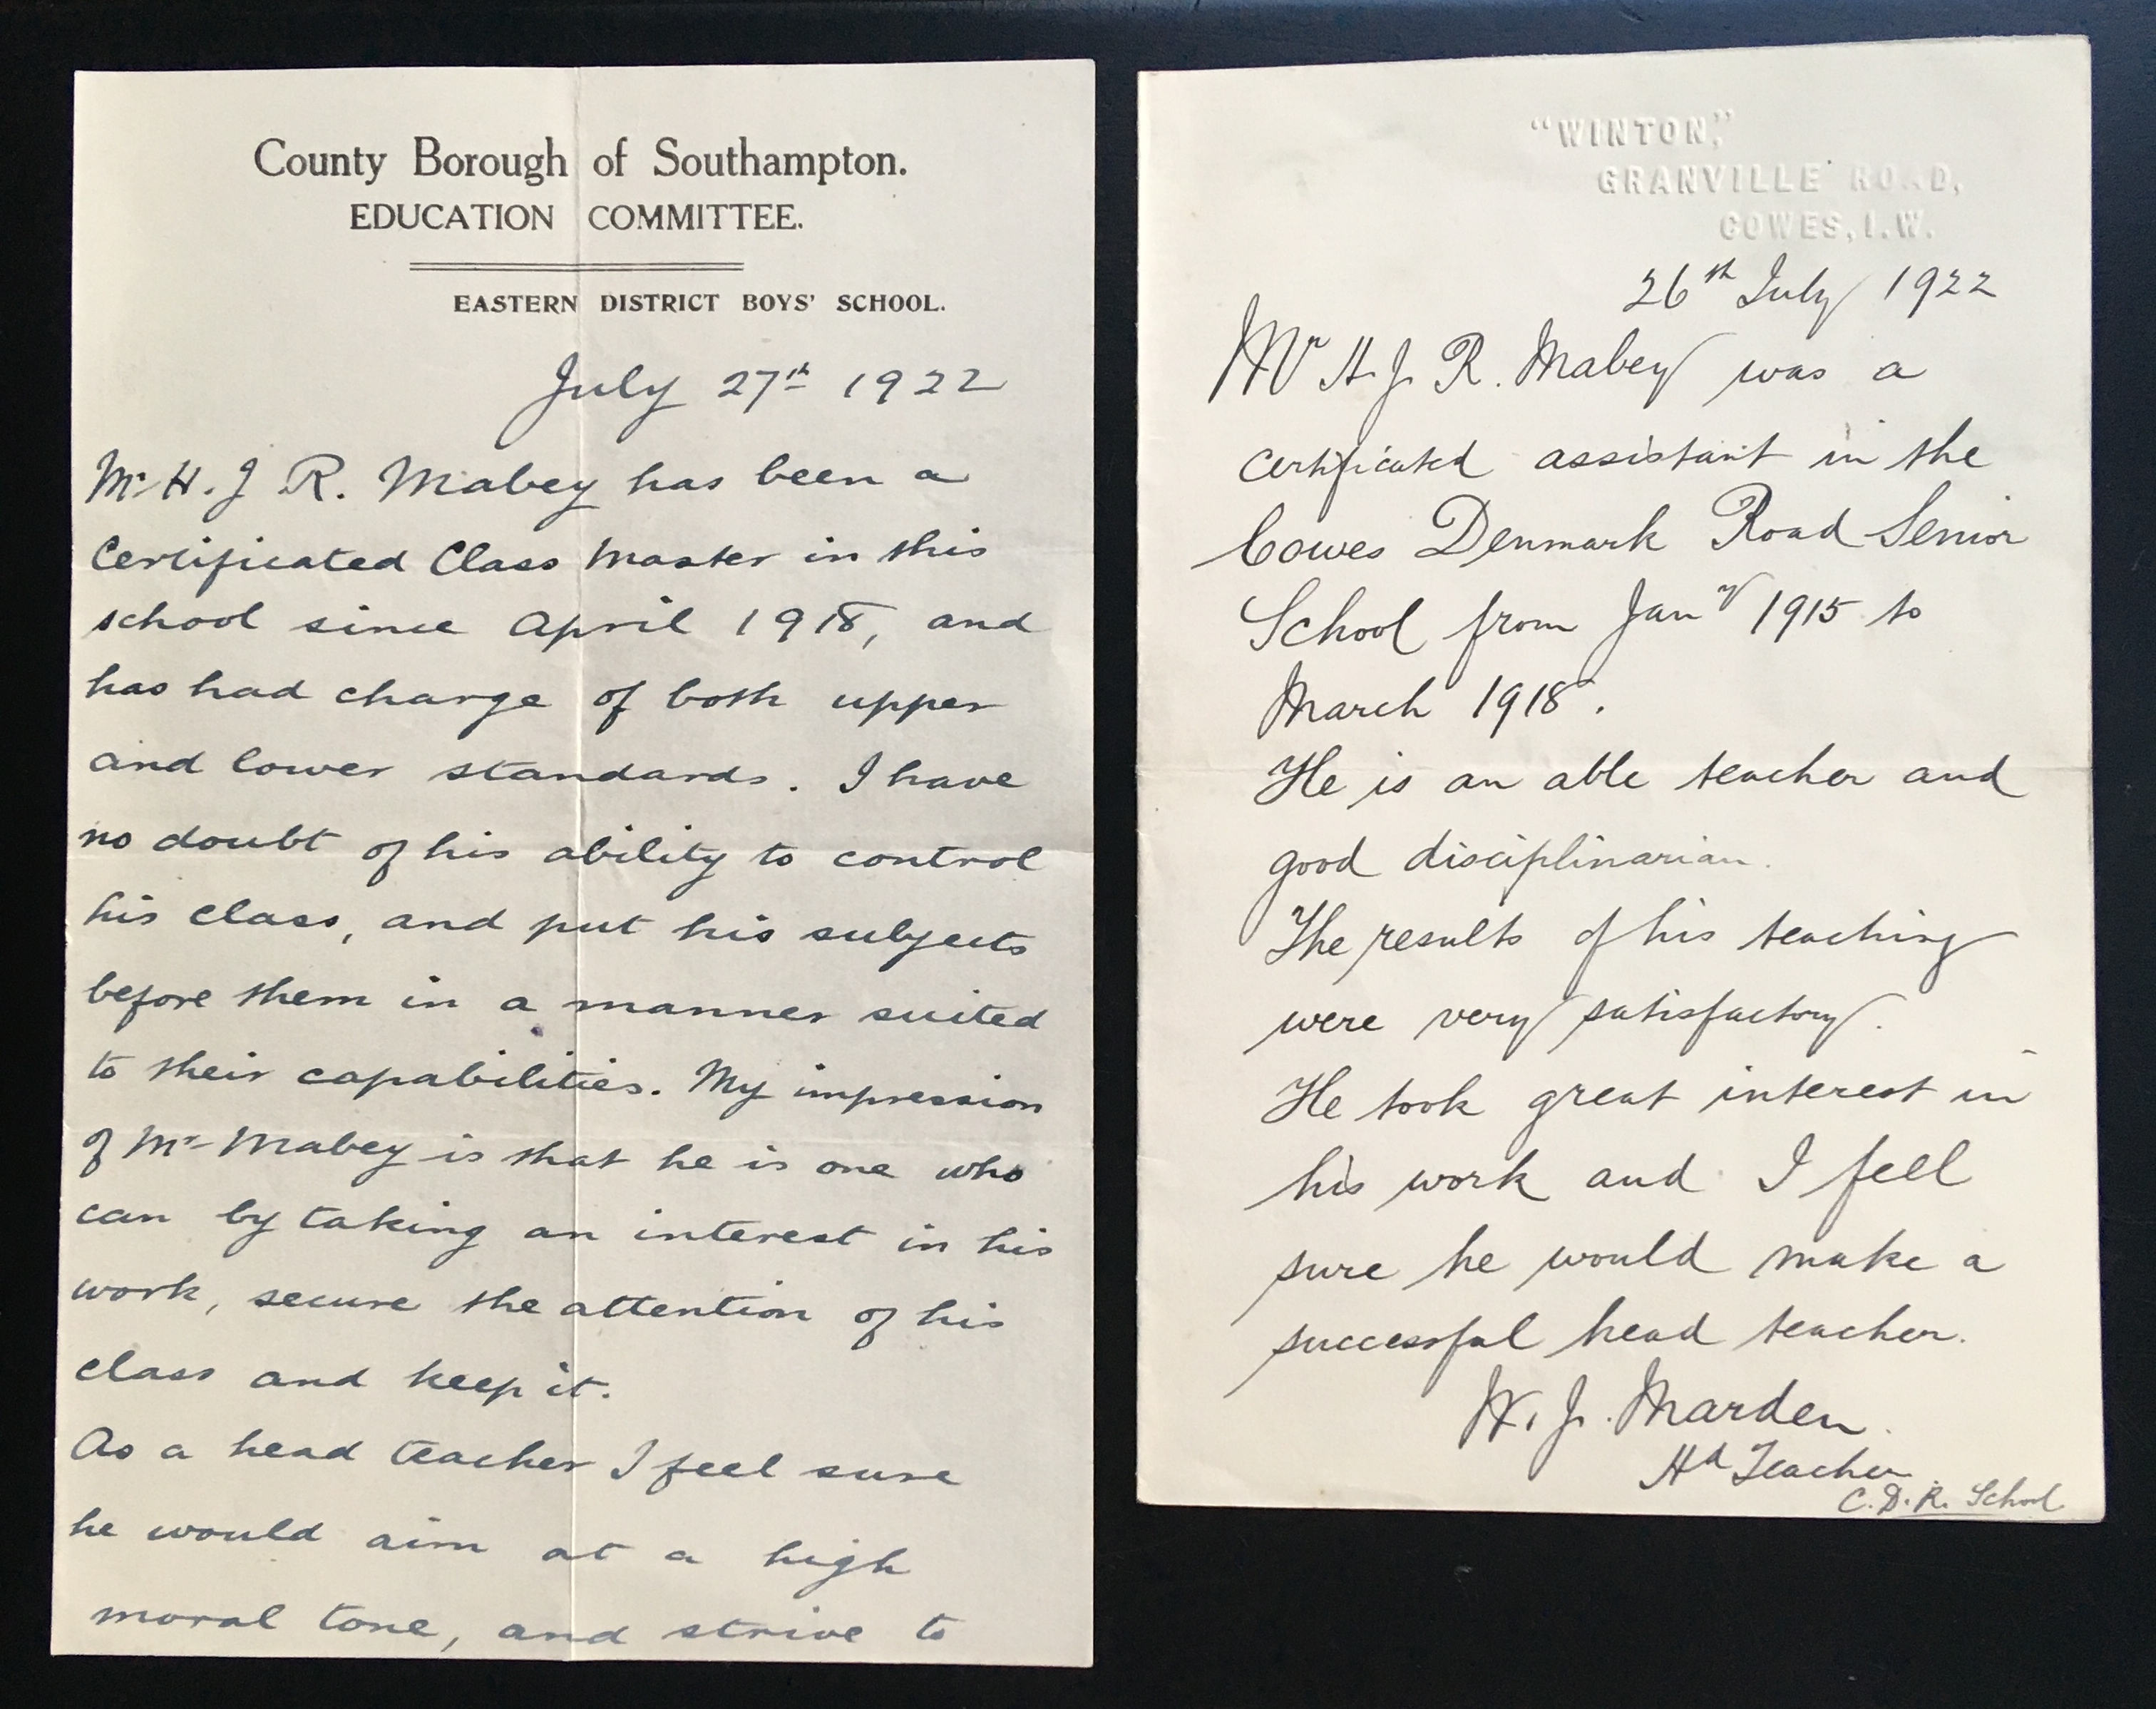 County Borough of Southampton.
EDUCATION COMMITTEE.
EASTERN DISTRICT BOYS' SCHOOL.
July 27th 1922
Mr H. J R. Mabey has been a
Certificated Class Master in this
school since April 1918, and
has had charge of both upper
and lower standards. I have
no doubt of his ability to control
his class, and put his subjects
before them in a manner suited
to their capabilities. My impression
of Mr Mabey is that he is one who
can by taking an interest in his
work, secure the attention of his
class and keep it.
As a head teacher I feel sure
he would aim at a high
moral tone, and strive to
"WINTON,"
GRANVILLE ROAD,
COWES, I.W.
26th July 1922
Mr H. J. R. Mabey was a
certificated assistant in the
Cowes Denmark Road Senior
School from Jany 1915 to
March 1918.
He is an able teacher and
good disciplinarian.
The results of his teaching
were very satisfactory.
He took great interest in
his work and I feel
sure he would make a
successful head teacher.
W. J. Marden.
Hd Teacher
C. D. R. School